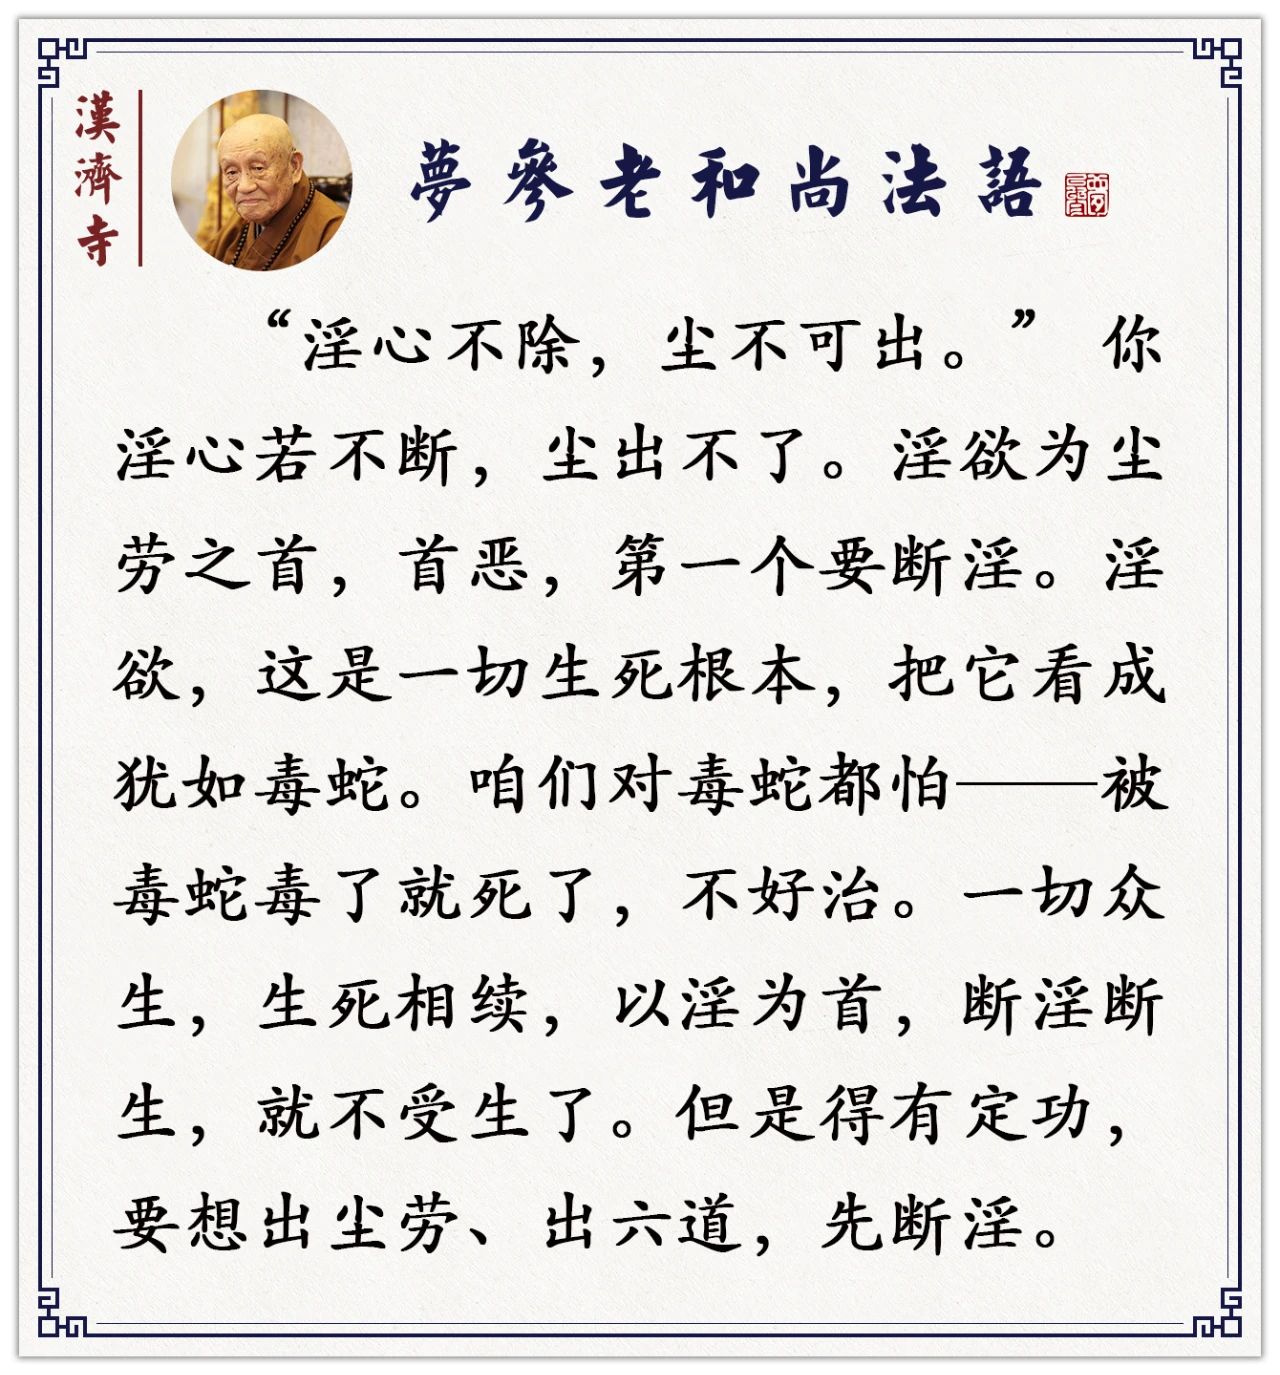 漢濟寺
夢參老和尚法語
“淫心不除，尘不可出。” 你
淫心若不断，尘出不了。淫欲为尘
劳之首，首恶，第一个要断淫。淫
欲，这是一切生死根本，把它看成
犹如毒蛇。咱们对毒蛇都怕——被
毒蛇毒了就死了，不好治。一切众
生，生死相续，以淫为首，断淫断
生，就不受生了。但是得有定功，
要想出尘劳、出六道，先断淫。